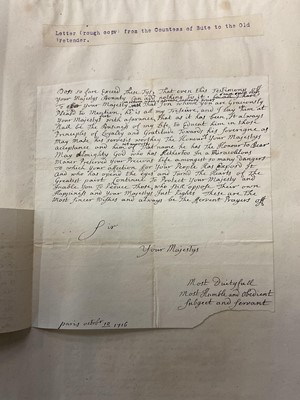 Letter (rough copy) from the Countess of Bute to the Old
Pretender.
so fare Exceed these Just, That even this Testimony of
Your Majestys Bounty, can add nothing to it,
To Your Majesty that Son, which you are Graciously
Pleas'd to Mention, he is my Treasure, and I Lay him at
Your Majestys feet with assurance, that as it has been, It always
shall be the Bussiness of my Life to Educat him in those
Principles of Loyalty and Gratitude Towards his Soveraigne, as
May make his services worthey the Honour Your Majestys
acceptance and not unworthy of that name he has the Honour To Bear
May Almighty God who has Hitherto In a Miraculous
Maner Preserved Your Precious Life amongst so many dangers
To which your affection for Your People has Expos'd you
and who has opend the eyes and Turnd the Hearts of the
Greatest part Continue To Protect Your Majesty and
Enable You To Reduce Those, who still oppose Their own
Happiness and Your Majestys Just Rights These are The
Most sincer Wishes and always be The Fervent Prayers off
Sir
Your Majestys
Most Dutyfull
Most Humble and obedient
subject and servant
paris octobr 12 1716